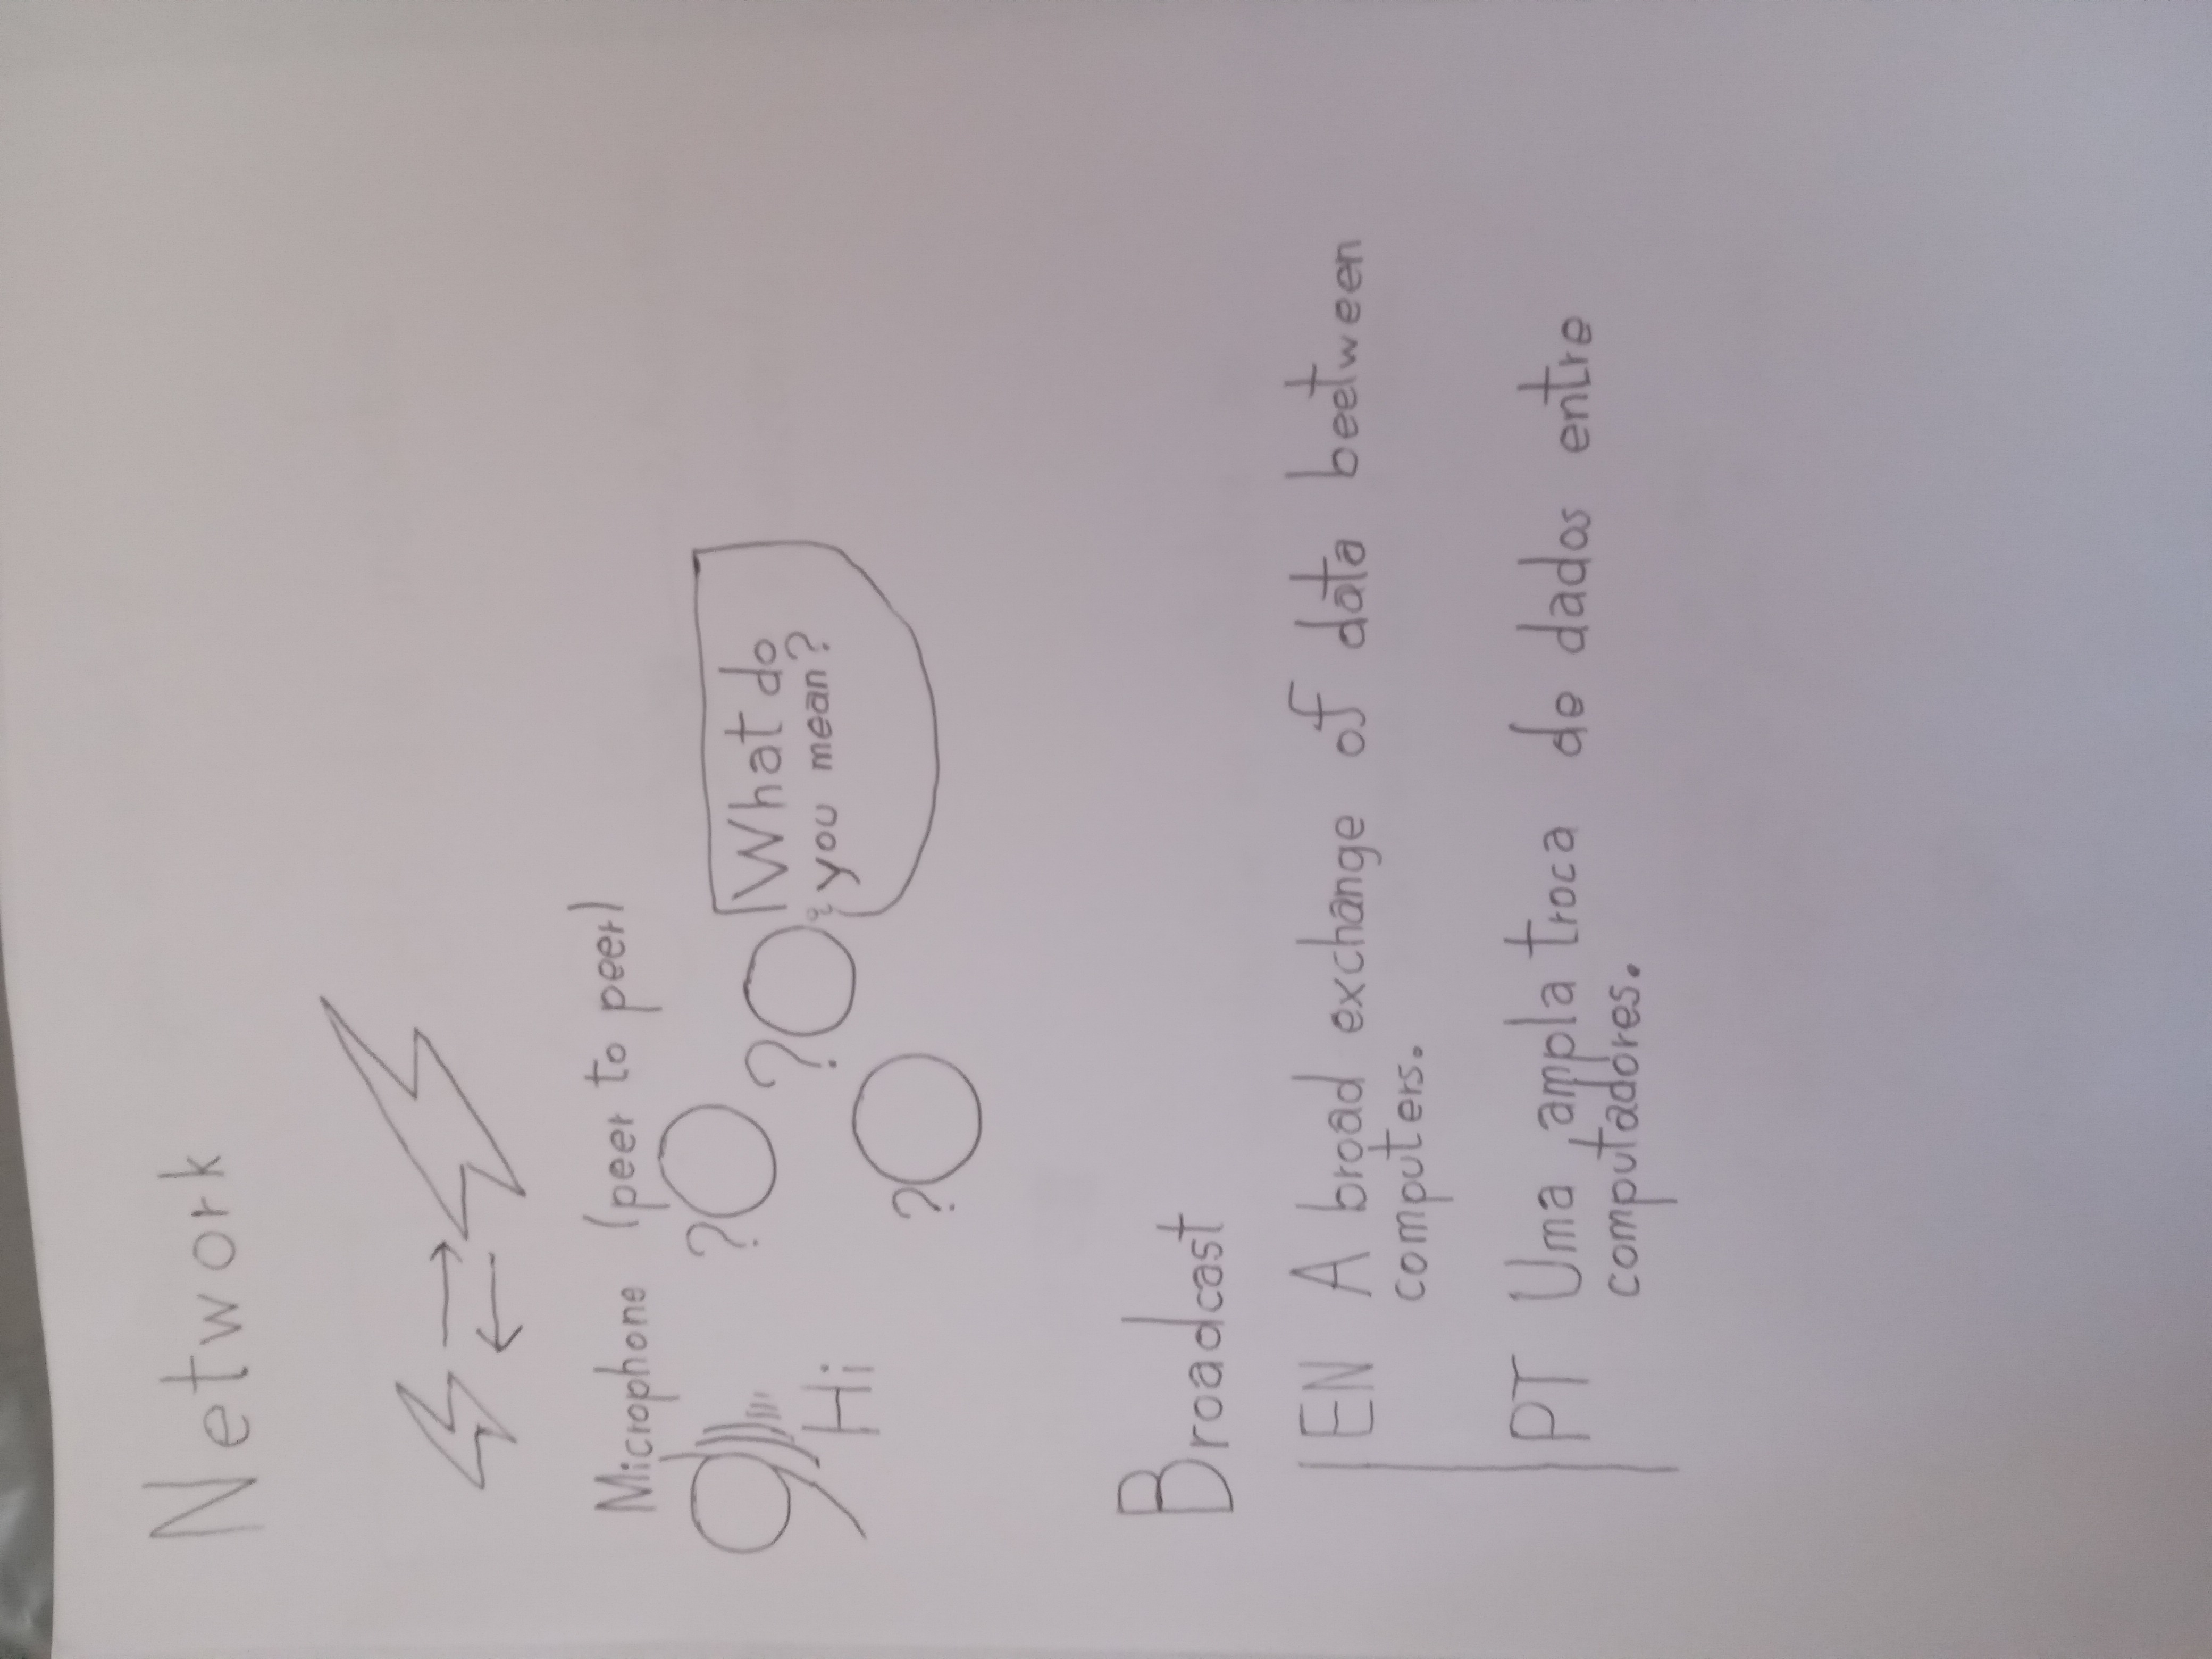 Network
Microphone (peer to peer)
?
?
What do
you mean?
Hi
?
Broadcast
EN A broad exchange of data beetween
computers.
PT Uma ampla troca de dados entre
computadores.